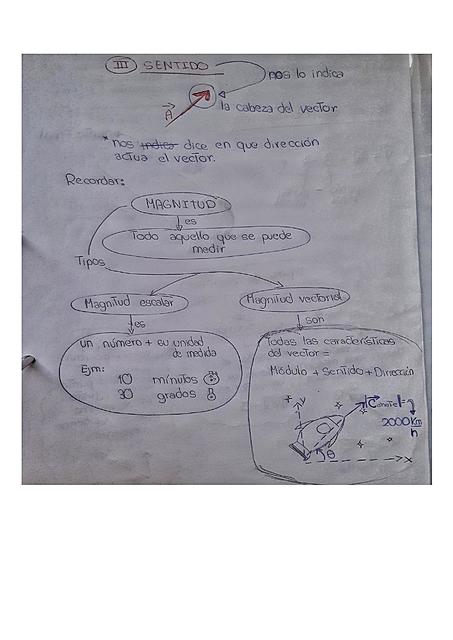 III SENTIDO
nos lo indica
A
la cabeza del vector
* nos indica dice en que dirección
actua el vector.
Recordar:
MAGNITUD
es
Todo aquello que se puede
medir
Tipos
Magnitud escalar
Magnitud vectorial
es
son
un número + su unidad
de medida
Ejm:
10 minutos
30 grados
Todas las características
del vector =
Módulo + Sentido + Dirección
y
|Cohete|=
2000 Km
h
θ
x